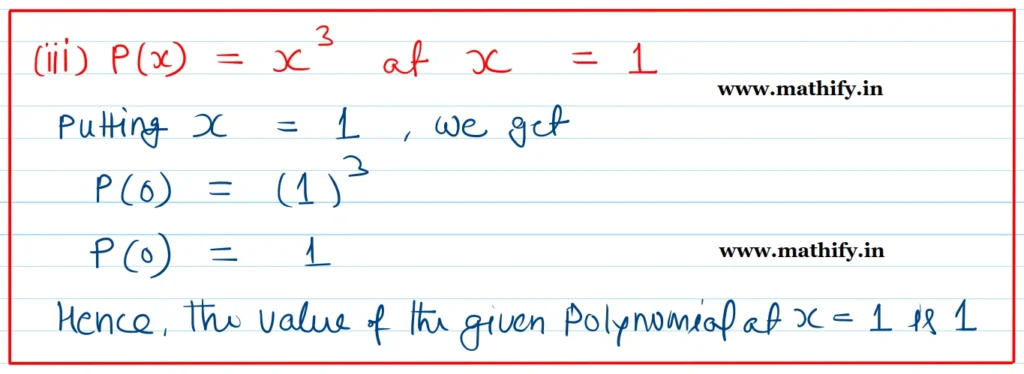 (iii) P(x) = x³ at x = 1
www.mathify.in
Putting x = 1, we get
P(0) = (1)³
P(0) = 1
www.mathify.in
Hence, the value of the given Polynomial at x = 1 is 1